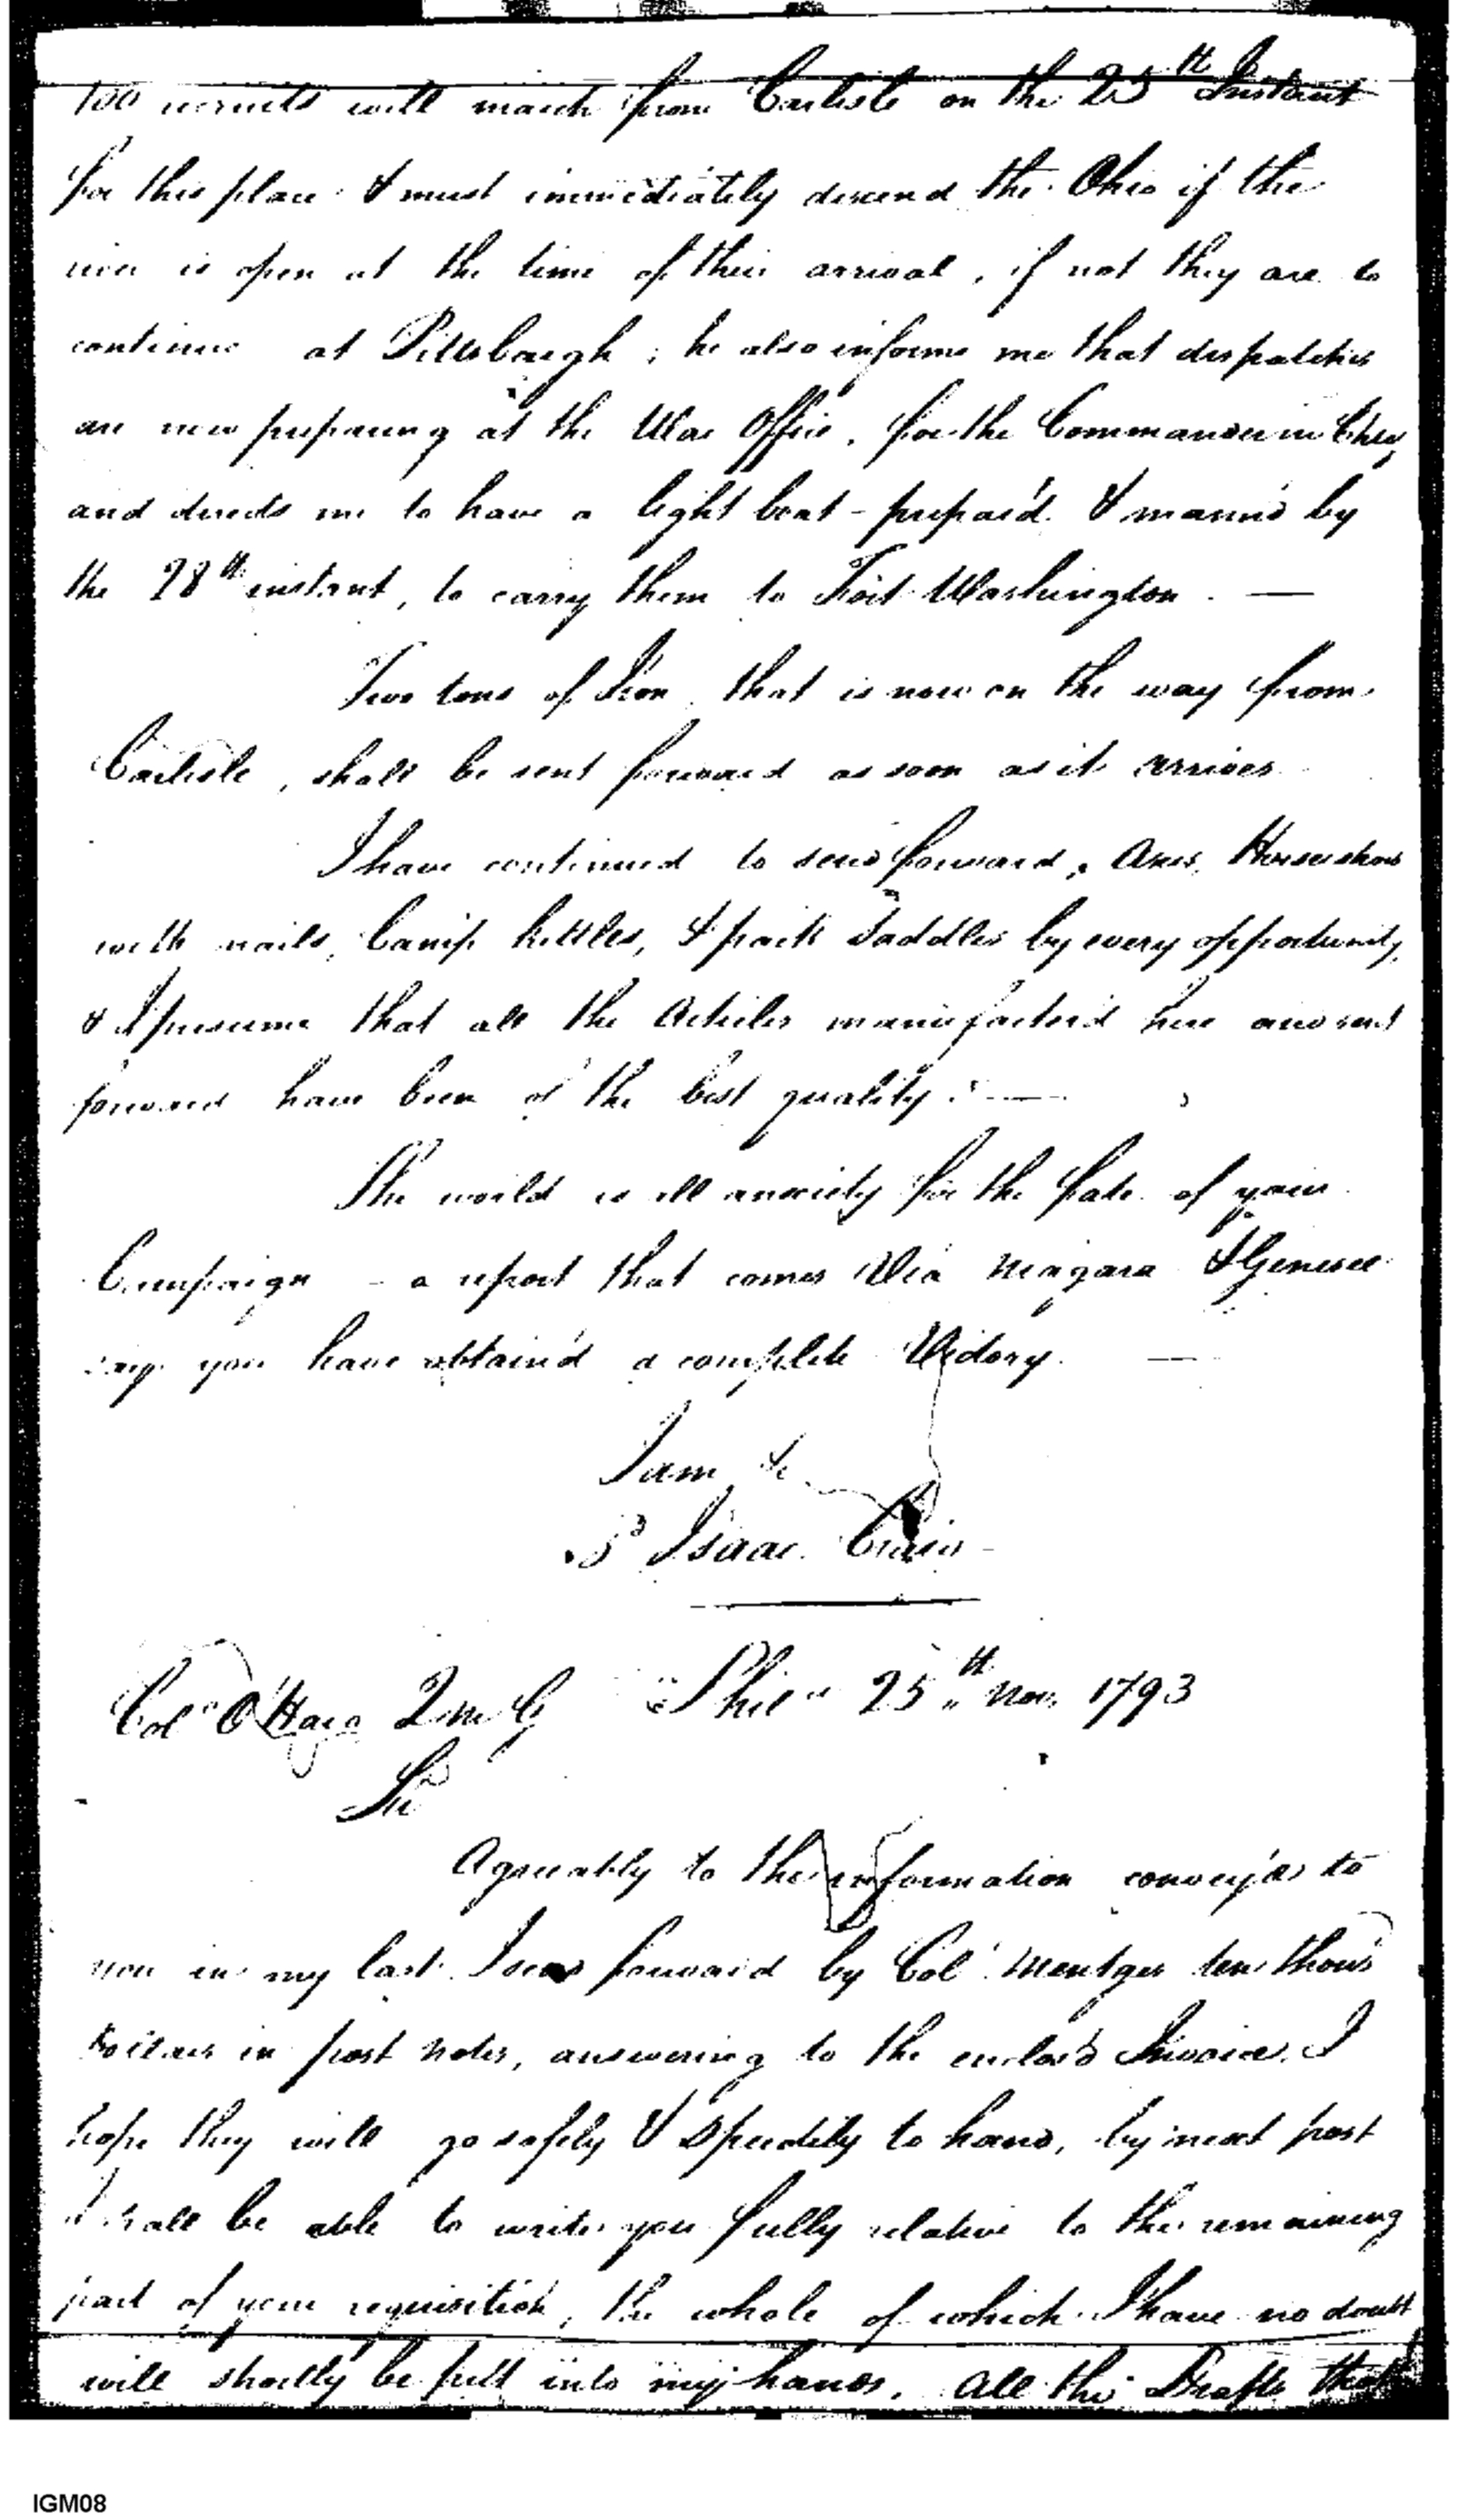 100 recruits will march from Carlisle on the 25th Instant
for this place & must immediately descend the Ohio if the
river is open at the time of their arrival, if not they are to
continue at Pittsburgh; he also informs me that dispatches
are now prepairing at the War Office, for the Commander in Chief
and directs me to have a light boat - prepair'd & mann'd by
the 28th instant, to carry them to Fort Washington. —
Two tons of Iron that is now on the way from
Carlisle, shall be sent forward as soon as it arrives
I have continued to send forward, Axes, Horse shoes
with nails, Camp kettles, & pack Saddles by every opportunity,
& I presume that all the Articles manufactor'd here and sent
forward have been of the best quality. —
The world is all anxiety for the fate of your
Campaign - a report that comes Via Niagara & Genesee
say you have obtain'd a complete Victory. —
I am &c
Isaac Craig
Col O'Hara Q M G Phila 25th Nov. 1793
Sir
Agreeably to the information convey'd to
you in my last I send forward by Col. Mentges ten thous'd
Dollars in post notes, answering to the enclos'd Invoice. I
hope they will go safely & Speedily to hand, by next post
I shall be able to write you fully relative to the remaining
part of your requisition, the whole of which I have no doubt
will shortly be putt into my hands. All the Drafts that
IGM08